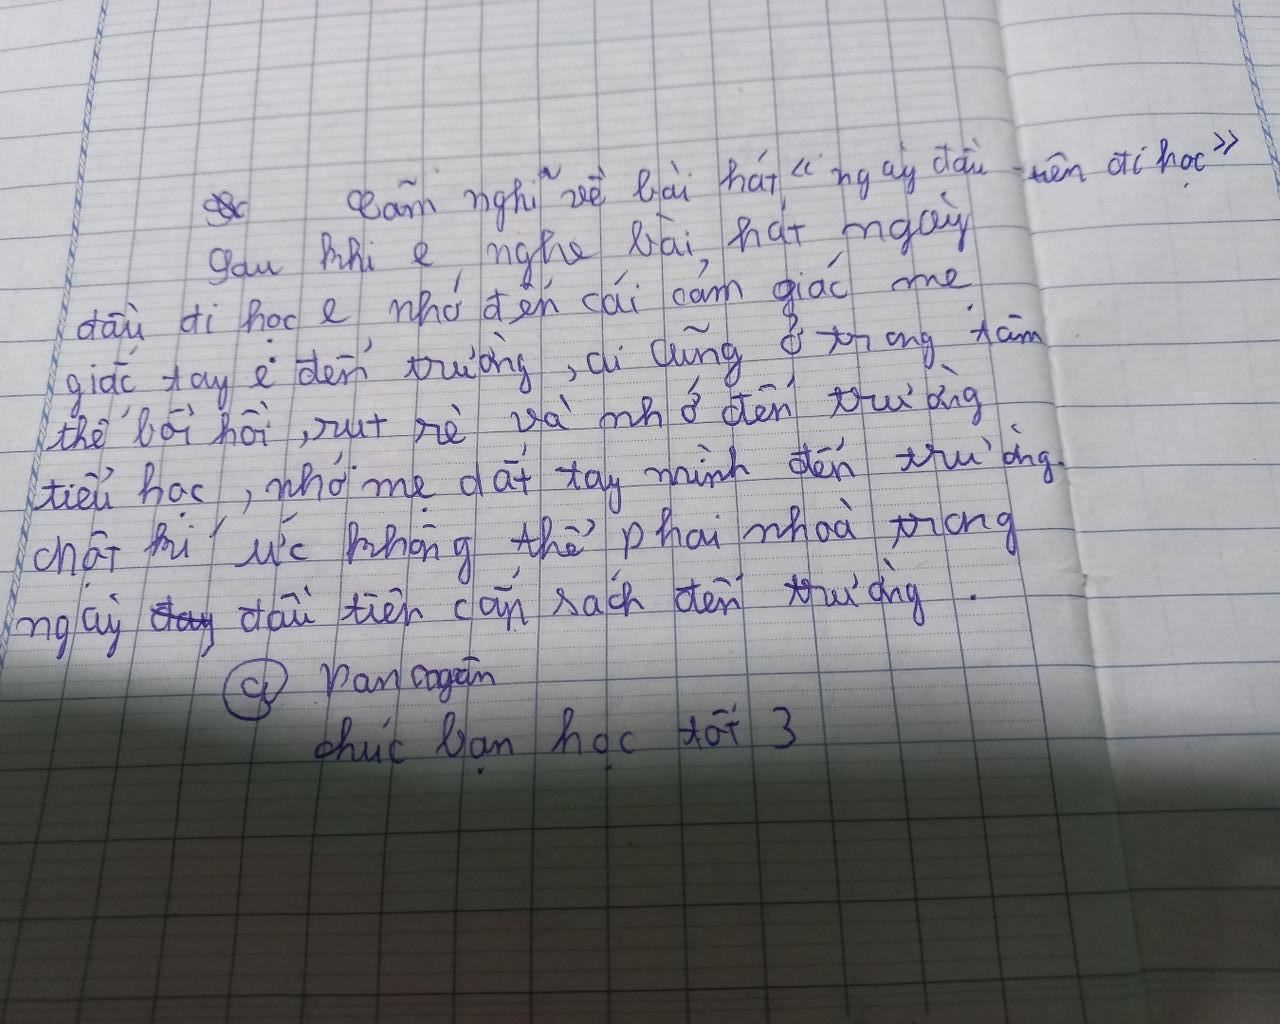 Cãm nghĩ về bài hát "ngay đầu tiên đi học"
sau khi e nghe bài hát ngày
đầu đi học e nhớ đến cái cảm giác mẹ
giắc tay e đến trường, ai cũng ở trong tâm
thế bồi hồi, rụt rè và nhớ đến trường
tiểu học, nhớ mẹ dắt tay mình đến trường.
một kí ức không thể phai nhoà trong
ngày đầu tiên cắp sách đến trường.
chúc bạn học tốt 3